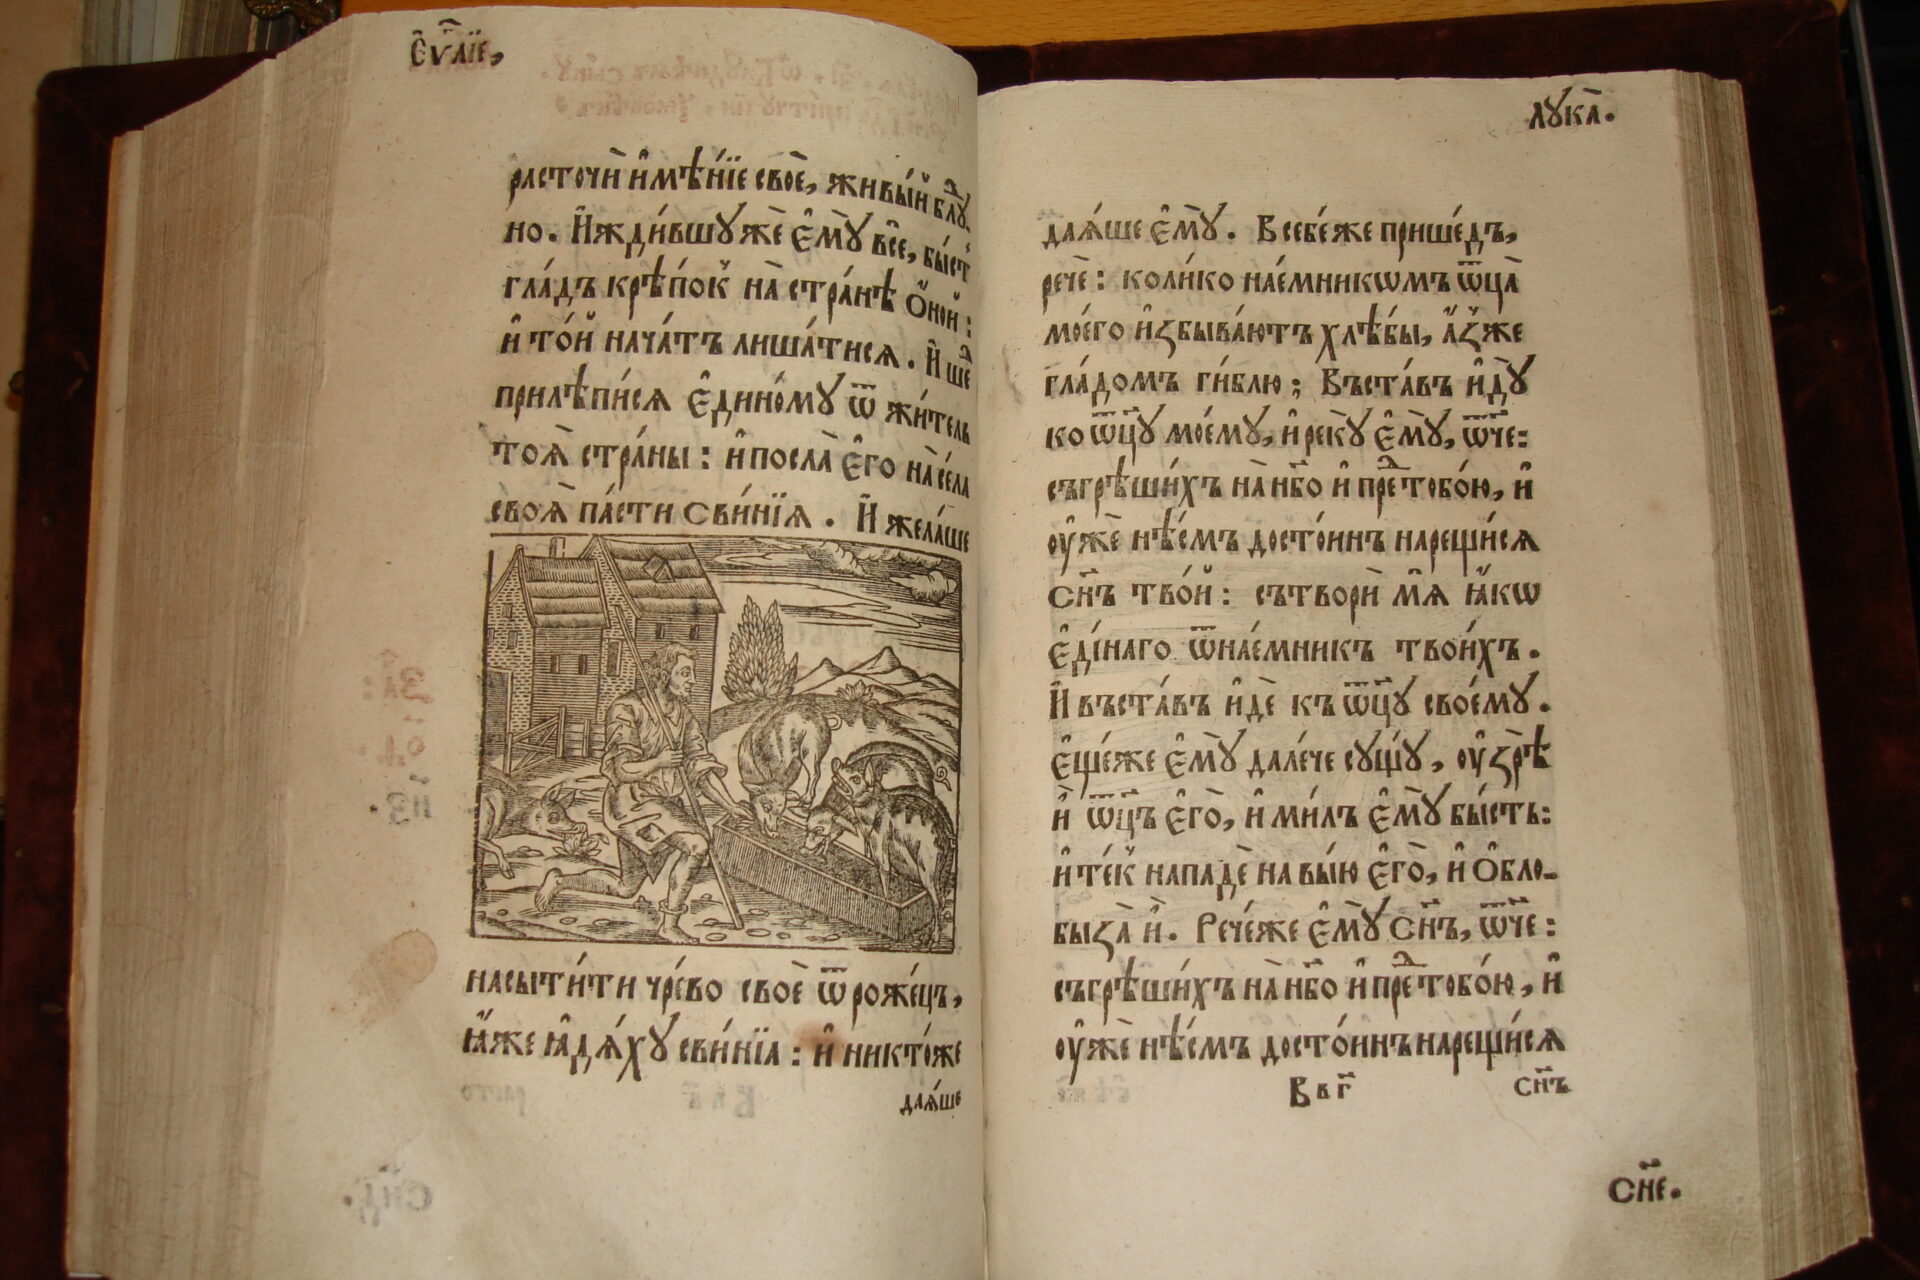 Є҆ѵⷢ҇лїе,
расточѝ и҆мѣ́нїе своѐ, живы́й блꙋⷣ
но. И҆жди́вшꙋжѐ є҆мꙋ̀ всѐ, бы́стⸯ
гла́дъ крѣ́покⸯ на̀ стра́нѣ ѻ҆́ной:
и҆ то́й нача́тъ лиша́тисѧ. И҆ шеⷣ
прилѣпи́сѧ є҆дино́мꙋ ѿ жи́тель
тоѧ̀ страны̀: и҆ посла̀ є҆го̀ на̀ се́ла
своѧ̀ па́сти свинїѧ̀. И҆ жела́ше
насыти́ти чре́во своѐ ѿ рожє́цъ,
ꙗ҆̀же ꙗ҆дѧ́хꙋ сви́нїѧ: и҆ никто́же
даѧ́ше
Лꙋка̀.
даѧ́ше є҆мꙋ̀. В себе́же прише́дъ,
речѐ: коли́ко нае́мникѡмъ ѿц҃а̀
моего̀ и҆збыва́ютъ хлѣ́бы, а҆́зⸯже
гла́домъ ги́блю; Въста́въ и҆дꙋ̀
ко ѿц҃ꙋ̀ мое́мꙋ, и҆ рекꙋ̀ є҆мꙋ̀, ѿч҃е:
съгрѣши́хъ на̀ нб҃о и҆ преⷣ тобо́ю, и҆
ᲂу҆жѐ нѣ́смъ досто́инъ нарещи́сѧ
сн҃ъ тво́й: сътворѝ мѧ̀ ꙗ҆́кѡ
є҆ди́наго ѿ нае́мникъ твои́хъ.
И҆ въста́въ и҆дѐ къ ѿц҃ꙋ̀ свое́мꙋ.
Є҆ще́же є҆мꙋ̀ дале́че сꙋ́щꙋ, ᲂу҆зрѣ̀
и҆̀ ѿц҃ъ є҆го̀, и҆ ми́лъ є҆мꙋ̀ бы́сть:
и҆ те́кⸯ нападѐ на вы́ю є҆го̀, и҆ ѻ҆бло-
быза̀ и҆̀. Рече́же є҆мꙋ̀ сн҃ъ, ѿч҃е:
съгрѣши́хъ на̀ нб҃о и҆ преⷣ тобо́ю, и҆
ᲂу҆жѐ нѣ́смъ досто́инъ нарещи́сѧ
В в г҃ сн҃ъ
сн҃е.